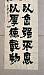 以自強不息
以厚德載物